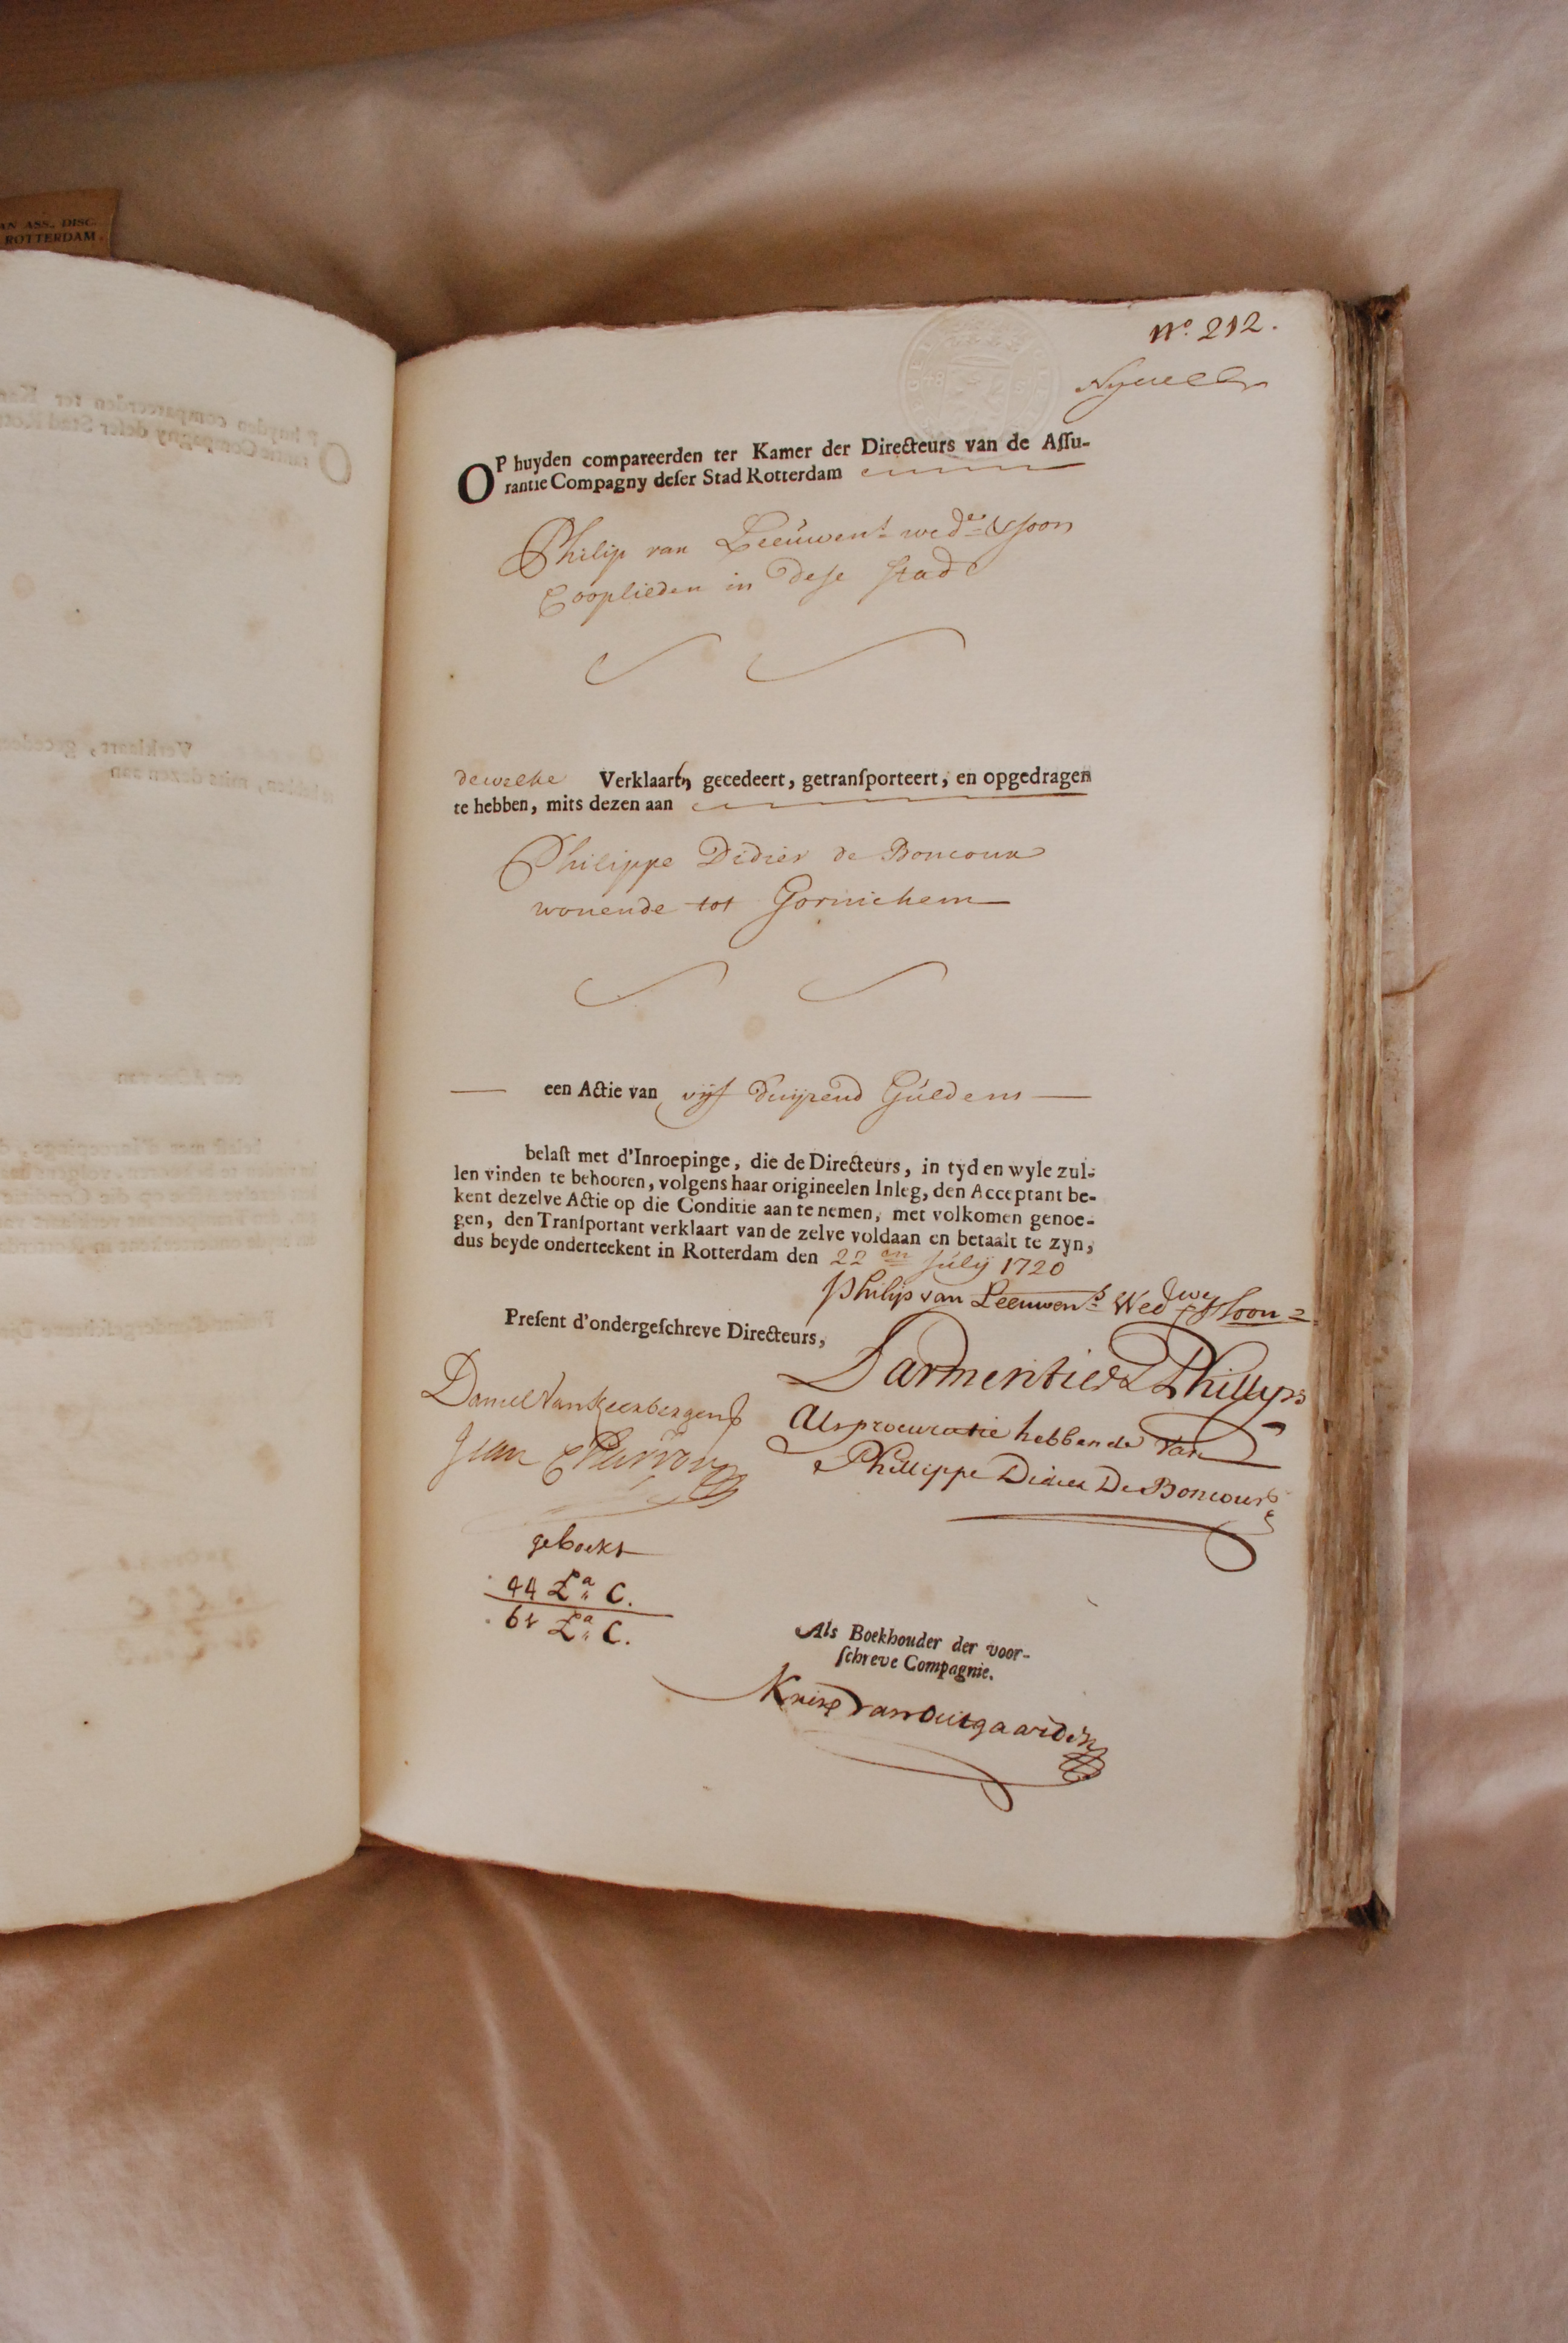 AN ASS. DISC.
ROTTERDAM.
Nº. 212.
OP huyden compareerden ter Kamer der Directeurs van de Aſſu-
rantie Compagny deſer Stad Rotterdam
Philip van Leeuwens wede & soon
Cooplieden in dese stad
dewelke Verklaaren gecedeert, getranſporteert, en opgedragen
te hebben, mits dezen aan
Philippe Didier de Boncour
wonende tot Gorinchem
een Actie van vijf duijzend Guldens
belaſt met d'Inroepinge, die de Directeurs, in tyd en wyle zul-
len vinden te behooren, volgens haar origineelen Inleg, den Acceptant be-
kent dezelve Actie op die Conditie aan te nemen, met volkomen genoe-
gen, den Tranſportant verklaart van de zelve voldaan en betaalt te zyn,
dus beyde onderteekent in Rotterdam den 22en July 1720
Philip van Leeuwens Wedwe & Soon
Preſent d'ondergeſchreve Directeurs,
Darmentier & Phillips
Daniel Van Keerbergen
Als procuratie hebbende van
Jean
Phillippe Didier De Boncour
geboekt
44 La C.
La C.
Als Boekhouder der voor-
ſchreve Compagnie.
van Outgaarden